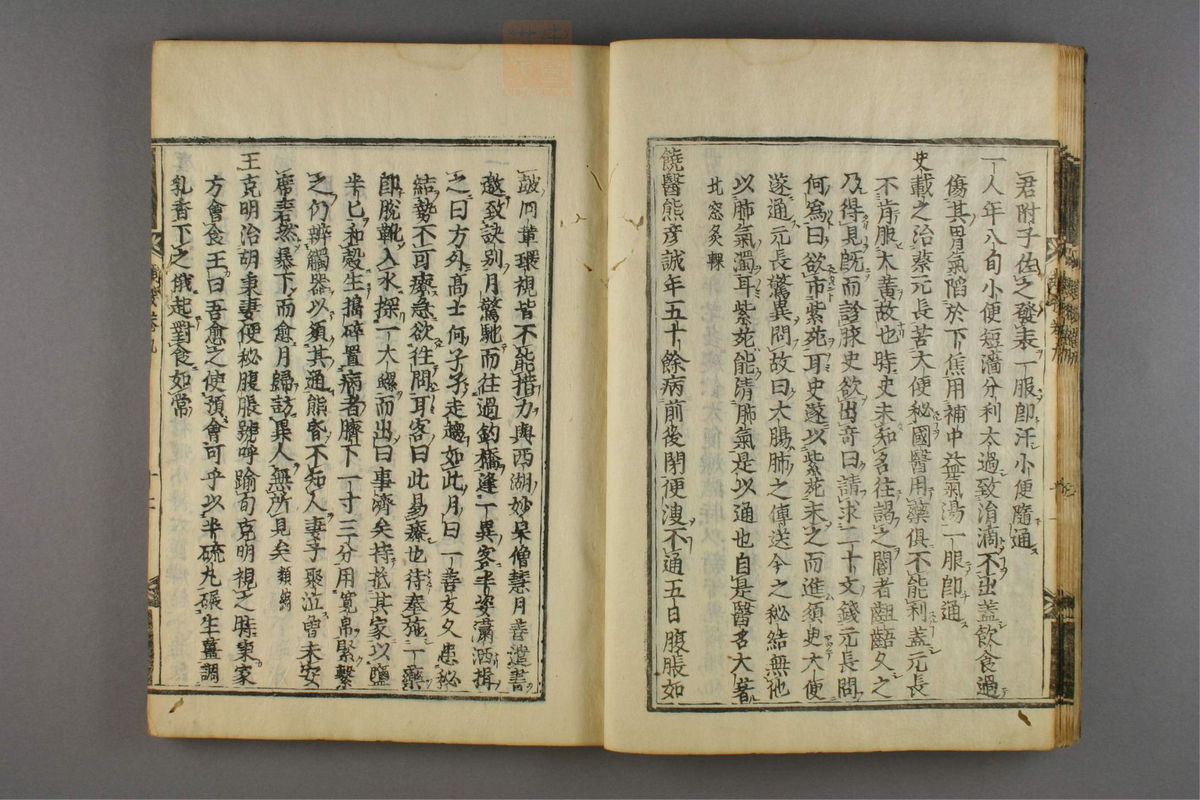 君附子佐之發表一服即汗小便隨通
一人年八旬小便短濇分利太過致涓滴不出蓋飲食過
傷其胃氣陷於下焦用補中益氣湯一服即通
史載之治蔡元長苦大便秘國醫用藥俱不能利蓋元長
不肯服大黃故也時史未知名往謁之閽者齟齬久之
乃得見既而診脉史欲出奇曰請求二十文錢元長問
何為曰欲市紫菀耳史遂以紫菀末之而進須臾大便
遂通元長驚異問故曰大腸肺之傳送今之秘結無他
以肺氣濁耳紫菀能清肺氣是以通也自是醫名大著
北窓炙輠
饒醫熊彦誠年五十餘病前後閉便溲不通五日腹脹如
鼓同輩環視皆不能措力與西湖妙果僧慧月善遣書
邀致訣別月驚馳而往過釣橋逢一異客丰姿瀟洒揖
之曰方外高士何孑孑走趨如此月曰一善友久患秘
結勢不可療急欲往問耳客曰此易療也待奉施一藥
即脫靴入水探一大螺而出曰事濟矣持抵其家以鹽
半匕和殼生搗碎置病者臍下一寸三分用寬帛緊繫
之仍辨觸器以須其通熊昏不知人妻子聚泣曾未安
席砉然暴下而愈月歸訪異人無所見矣 類編
王克明治胡秉妻便秘腹脹號呼踰旬克明視之時秉家
方會食王曰吾愈之使預會可乎以半硫丸碾生薑調
乳香下之俄起對食如常